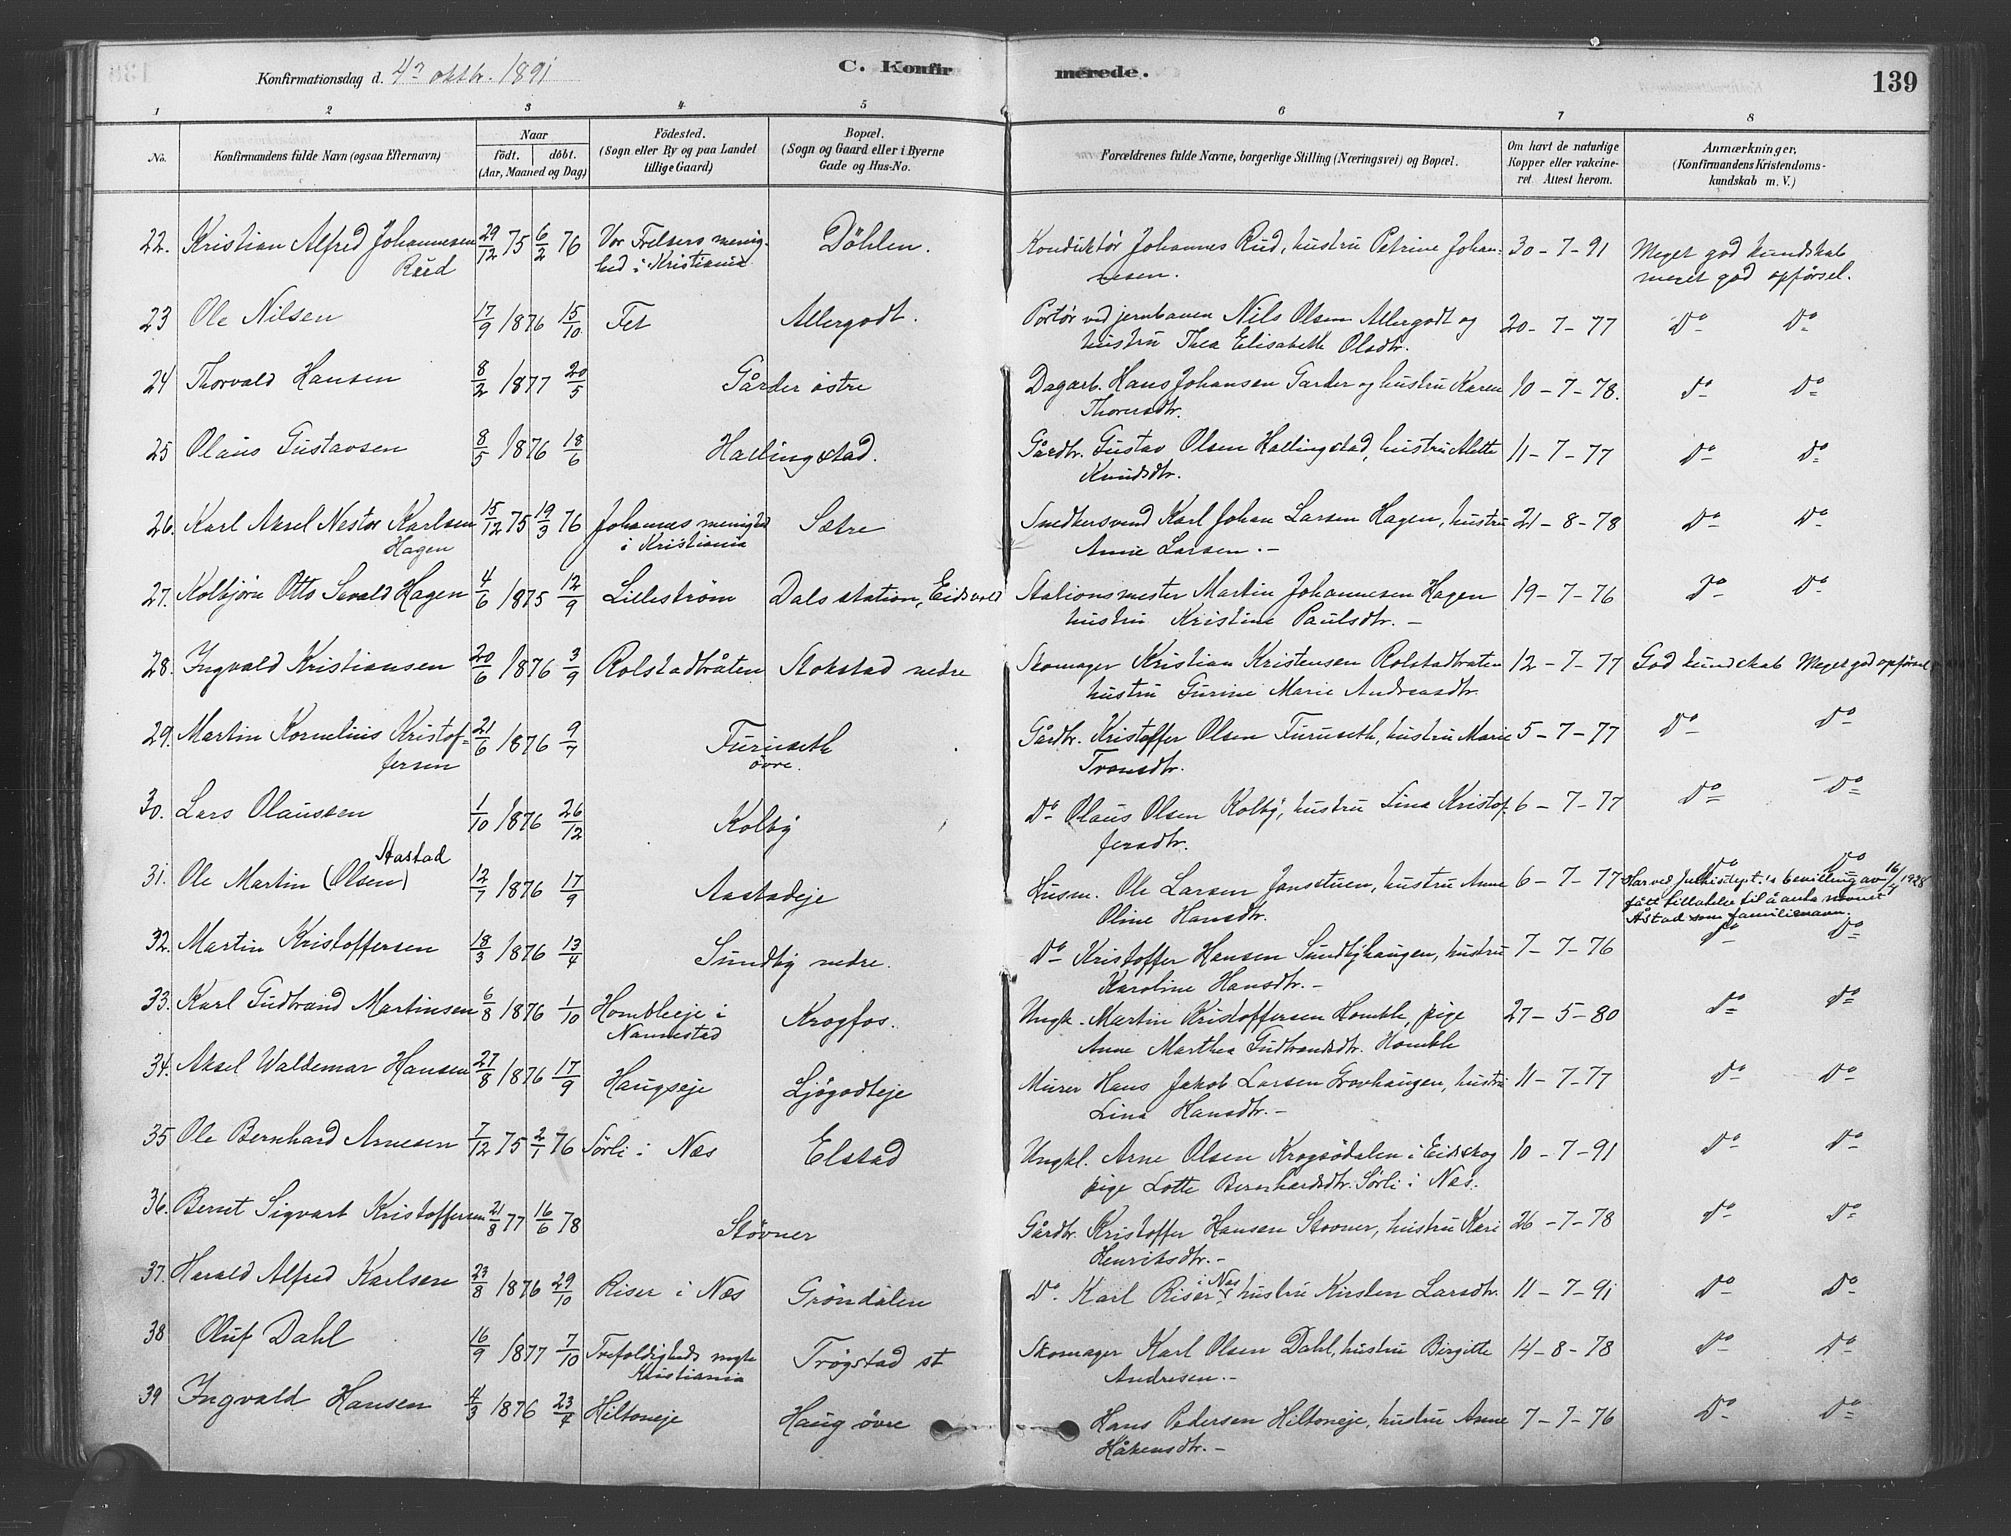 Konfirmationsdag d. 4de oktbr. 1891
C. Konfirmerede.
139
1 2 3 4 5 6 7 8
No.
Konfirmandens fulde Navn (ogsaa Efternavn)
Naar
födt. döbt.
(Aar, Maaned og Dag)
Födested.
(Sogn eller By og paa Landet
tillige Gaard)
Bopæl.
(Sogn og Gaard eller i Byerne
Gade og Hus-No.
Forældrenes fulde Navne, borgerlige Stilling (Næringsvei) og Bopæl.
Om havt de naturlige
Kopper eller vakcine-
ret Attest herom.
Anmærkninger,
(Konfirmandens Kristendoms-
kundskab m. V.)
22. Kristian Alfred Johannesen 29/12 75 6/2 76 Vor Frelsers menig- Döhlen. Konduktör Johannes Rud, hustru Petrine Johan- 30-7-91 Meget god kundskab
Ruud hed i Kristiania nesen. meget god opförsel.
23 Ole Nilsen 17/9 1876 15/10 Fet Allergodt. Portör ved jernbanen Nils Olsen Allergodt og 20-7-77 Do Do
hustru Thea Elisabeth Olsdtr.
24 Thorvald Hansen 8/2 1877 20/5 Gårder östre Dagarb. Hans Johansen Garder og hustru Karen 10-7-78. Do Do
Thorersdtr.
25 Olaus Gustavsen 8/5 1876 18/6 Hallingstad. Gårdbr. Gustav Olsen Hallingstad, hustru Mette 11-7-77 Do Do
Knudsdtr.
26. Karl Aksel Nestor Karlsen 15/12 75 19/3 76 Johannes menighed Sætre Snedkersvend Karl Johan Larsen Hagen, hustru 21-8-78 Do Do
Hagen i Kristiania Anne Larsen.-
27. Kolbjörn Otto Sevald Hagen 4/6 1875 12/9 Lilleström Dals station, Eidsvold Stationsmester Martin Johannesen Hagen 19-7-76 Do Do
hustru Kristine Paulsdtr.-
28. Ingvald Kristiansen 20/6 1876 3/9 Rolstadbråten Stokstad nedre Skomager Kristian Kristensen Rolstadbraten 12-7-77 God kundskab Meget god opförsel
hustru Gurine Marie Andreasdtr.
29. Martin Kornelius Kristof- 21/6 1876 9/7 Furuseth Gårdbr. Kristoffer Olsen Furuseth, hustru Marie 5-7-77 Do Do
fersen övre. Tronsdtr.
30. Lars Olaussen 1/10 1876 26/12 Kolby Do Olaus Olsen Kolby, hustru Lina Kristof- 6-7-77 Do Do
fersdtr.
Aastad
31. Ole Martin (Olsen) 12/7 1876 17/9 Aastadeje Husm. Ole Larsen Jonsstuen, hustru Anne 6-7-77 Do Do
Oline Hansdtr. Har ved Justisdept.'s bevilling av 16/4 1928
fått tillatelse til å anta navnet
Åstad som familienavn.
32. Martin Kristoffersen 18/3 1876 13/4 Sundby nedre. Do Kristoffer Hansen Sundbyhaugen, hustru 7-7-76 Do Do
Karoline Hansdtr.-
33. Karl Gudbrand Martinsen 6/8 1876 1/10 Hombleeje i Krogfos. Ungk. Martin Kristoffersen Homble, pige 27-5-80 Do Do
Nannestad Anne Marthea Gudbrandsdtr. Homble
34. Aksel Waldemar Hansen 27/8 1876 17/9 Haugseje Ljögodteje Murer Hans Jakob Larsen Grovhaugen, hustru 11-7-77 Do Do
Lina Hansdtr.-
35 Ole Bernhard Arnesen 7/12 75 2/1 76 Sörli i Næs Elstad Ungkl. Arne Olsen Krogsödalen i Eidskog 10-7-91 Do Do
pige Lotte Bernhardsdtr. Sörli i Næs.
36. Bernt Sigvart Kristoffersen 21/8 77 16/6 78 Stövner Gårdbr. Kristoffer Hansen Stovner, hustru Kari 26-7-78 Do Do
Henriksdtr.-
37. Harald Alfred Karlsen 23/8 1876 29/10 Riser i Næs Gröndalen Do. Karl Riser i Næs, hustru Kirsten Larsdtr. 11-7-91 Do Do
38 Oluf Dahl 16/9 1877 7/10 Trefoldigheds mgh. Trögstad st Skomager Karl Olsen Dahl, hustru Birgitte 14-8-78 Do Do
Kristiania Andresen.-
39 Ingvald Hansen 4/3 1876 23/4 Hiltoneje Haug övre Hans Pedersen Hiltoneje, hustru Anne 7-7-76 Do Do
Håkensdtr.-